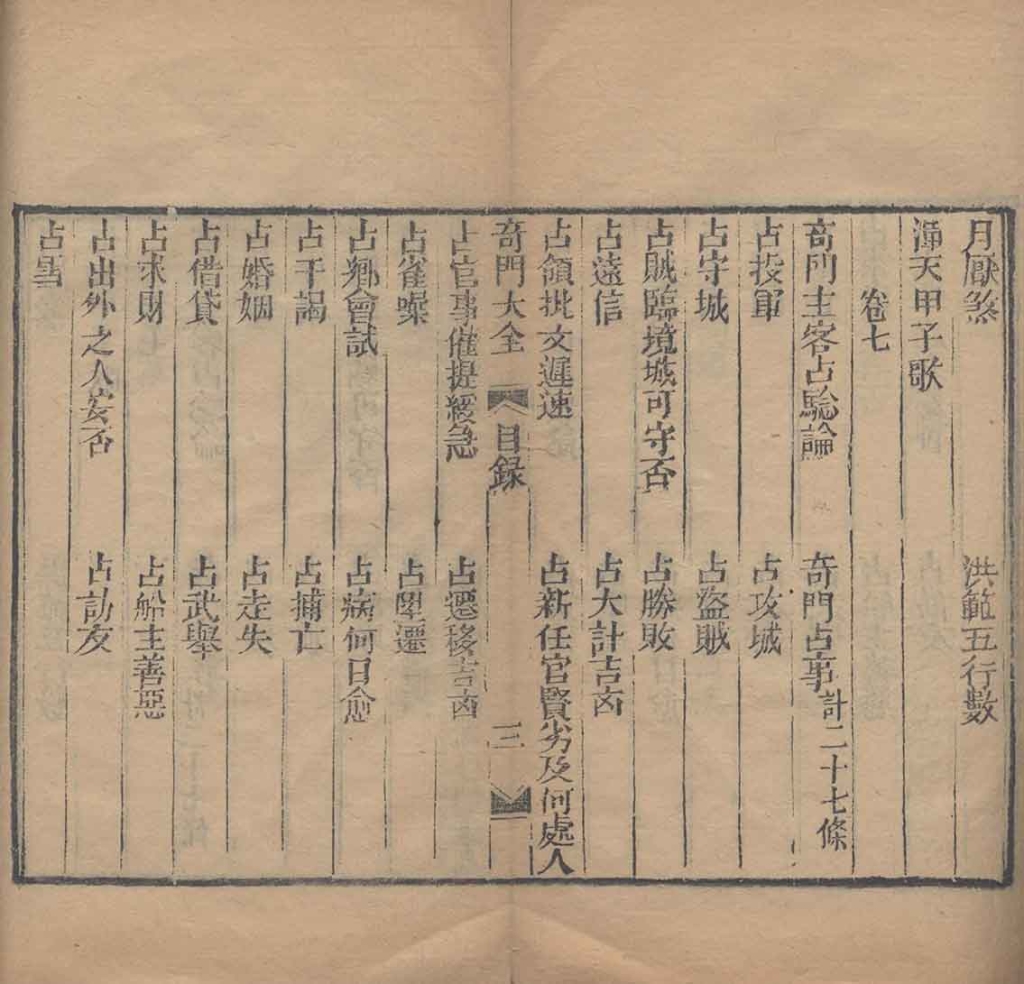 月厭煞　洪範五行數
渾天甲子歌
卷七
奇門主客占騐論　奇門占事計二十七條
占投軍　占攻城
占守城　占盜賊
占賊臨境城可守否　占勝敗
占遠信　占大計吉凶
占領批文遲速　占新任官賢劣及何處人
奇門大全　目録　三
占官事催提緩急　占遷移吉凶
占雀噪　占陞遷
占鄉會試　占病何日愈
占干謁　占捕亡
占婚姻　占走失
占借貸　占武舉
占求財　占船主善惡
占出外之人安否　占訪友
占雪